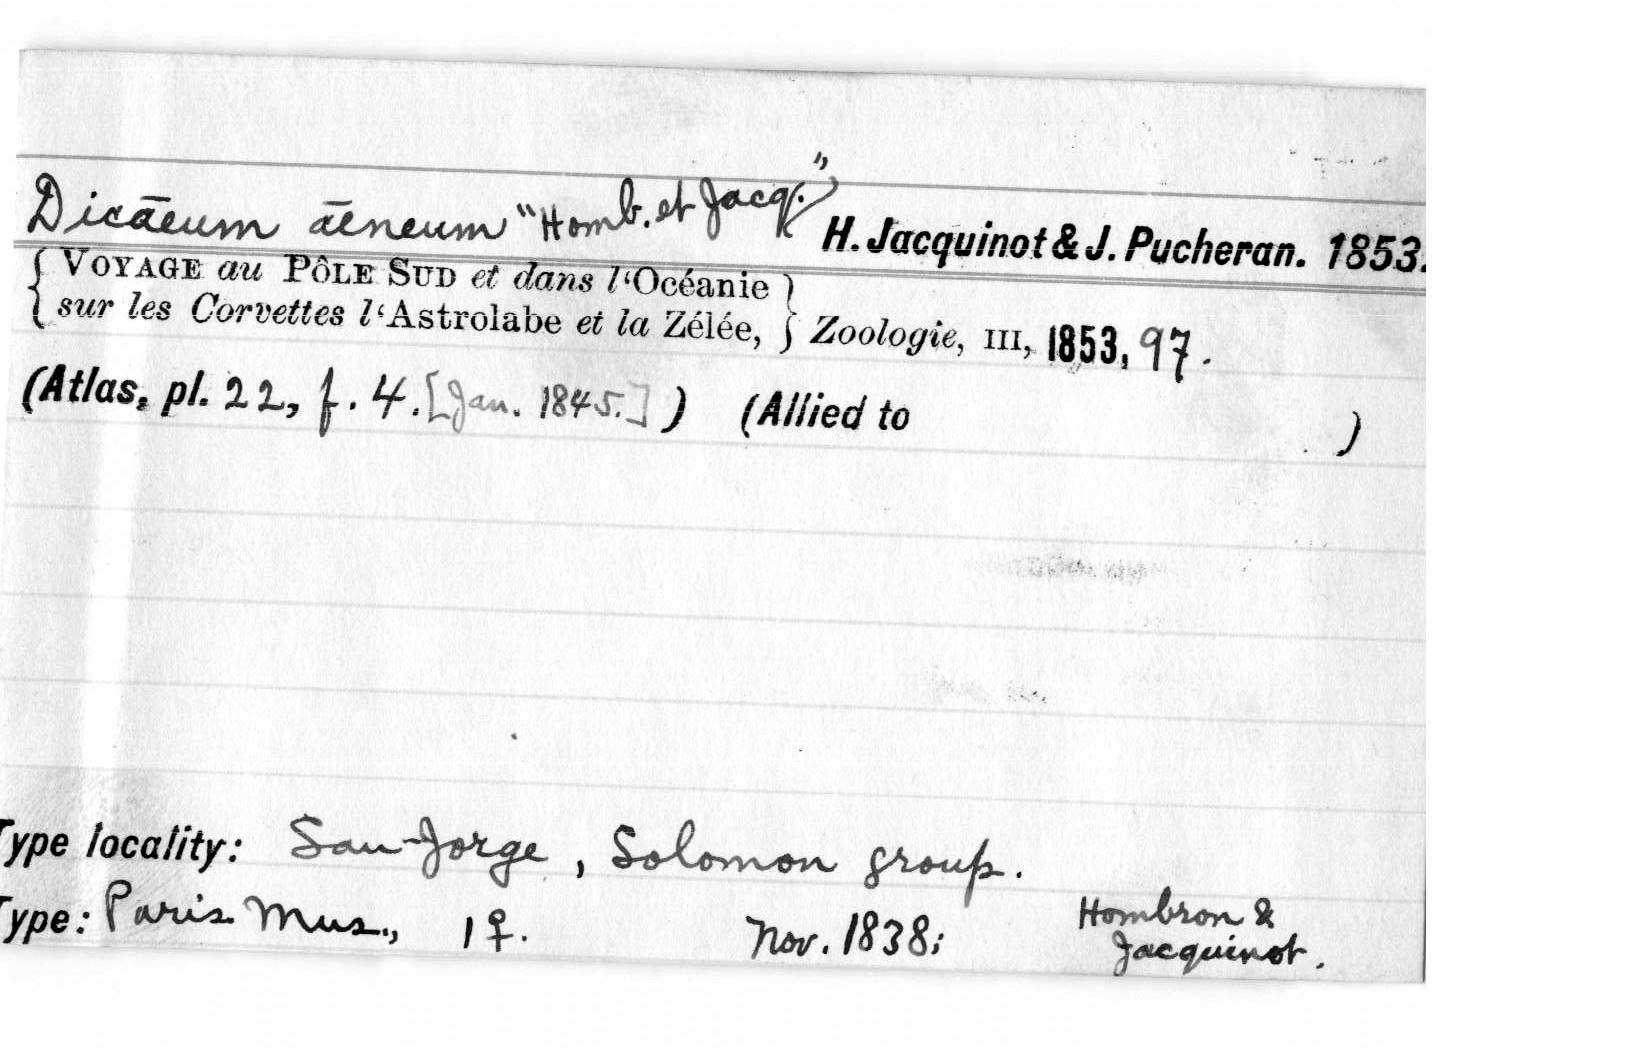 Dicāeum āeneum "Homb. et Jacq." H. Jacquinot & J. Pucheran. 1853.
{ VOYAGE au PÔLE SUD et dans l'Océanie }
{ sur les Corvettes l'Astrolabe et la Zélée, } Zoologie, III, 1853, 97.
(Atlas, pl. 22, f. 4. [Jan. 1845.] ) (Allied to )
Type locality: San-Jorge, Solomon group.
Type: Paris Mus., 1♀. Nov. 1838; Hombron &
Jacquinot.